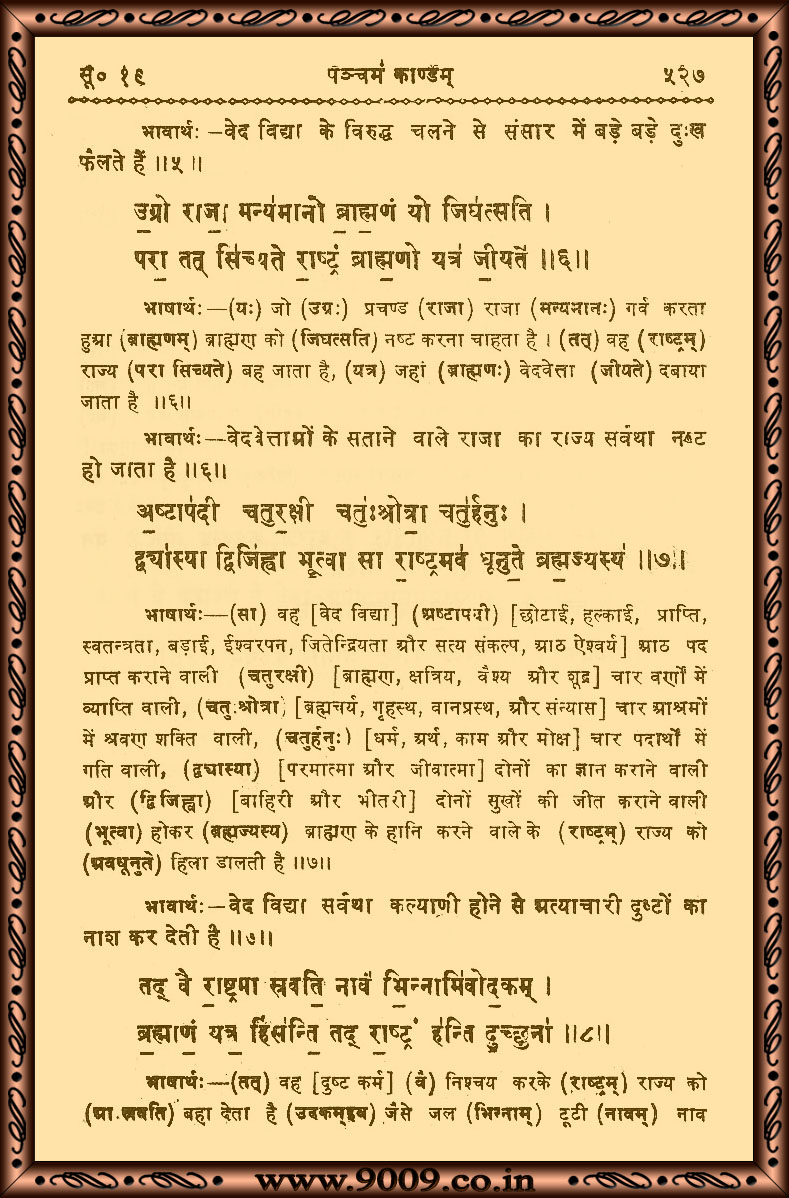 सू० १९ पञ्चमं काण्डम् ५२७
भावार्थः—वेद विद्या के विरुद्ध चलने से संसार में बड़े बड़े दुःख
फैलते हैं ॥५॥
उ॒ग्रो राजा॒ मन्य॑मानो ब्राह्म॒णं यो जिघ॑त्सति ।
परा॒ तत् सि॑च्यते रा॒ष्ट्रं ब्रा॑ह्म॒णो यत्र॑ जी॒यते॑ ॥६॥
भाषार्थः—(यः) जो (उग्रः) प्रचण्ड (राजा) राजा (मन्यमानः) गर्व करता
हुआ (ब्राह्मणम्) ब्राह्मण को (जिघत्सति) नष्ट करना चाहता है। (तत्) वह (राष्ट्रम्)
राज्य (परा सिच्यते) बह जाता है, (यत्र) जहां (ब्राह्मणः) वेदवेत्ता (जीयते) दबाया
जाता है ॥६॥
भावार्थः—वेदवेत्ताओं के सताने वाले राजा का राज्य सर्वथा नष्ट
हो जाता है ॥६॥
अ॒ष्टाप॑दी चतुर॒क्षी चतुः॑श्रोत्रा॒ चतु॑र्हनुः ।
द्व्या॑स्या॒ द्विजि॑ह्वा भू॒त्वा सा रा॒ष्ट्रमव॑ धूनुते ब्रह्म॒ज्यस्य॑ ॥७॥
भाषार्थः—(सा) वह [वेद विद्या] (अष्टापदी) [छोटाई, हल्काई, प्राप्ति,
स्वतन्त्रता, बड़ाई, ईश्वरपन, जितेन्द्रियता और सत्य संकल्प, आठ ऐश्वर्य] आठ पद
प्राप्त कराने वाली (चतुरक्षी) [ब्राह्मण, क्षत्रिय, वैश्य और शूद्र] चार वर्णों में
व्याप्ति वाली, (चतुःश्रोत्रा) [ब्रह्मचर्य, गृहस्थ, वानप्रस्थ, और संन्यास] चार आश्रमों
में श्रवण शक्ति वाली, (चतुर्हनुः) [धर्म, अर्थ, काम और मोक्ष] चार पदार्थों में
गति वाली, (द्व्यास्या) [परमात्मा और जीवात्मा] दोनों का ज्ञान कराने वाली
और (द्विजिह्वा) [बाहिरी और भीतरी] दोनों सुखों की जीत कराने वाली
(भूत्वा) होकर (ब्रह्मज्यस्य) ब्राह्मण के हानि करने वाले के (राष्ट्रम्) राज्य को
(अवधूनुते) हिला डालती है ॥७॥
भावार्थः—वेद विद्या सर्वथा कल्याणी होने से अत्याचारी दुष्टों का
नाश कर देती है ॥७॥
तद् वै रा॒ष्ट्रमा स्र॑वति॒ नावं॑ भि॒न्नामि॑वोद॒कम् ।
ब्र॒ह्माणं॒ यत्र॒ हिंस॑न्ति॒ तद् रा॒ष्ट्रं ह॑न्ति दु॒च्छुना॑ ॥८॥
भाषार्थः—(तत्) वह [दुष्ट कर्म] (वै) निश्चय करके (राष्ट्रम्) राज्य को
(आ स्रवति) बहा देता है (उदकम्इव) जैसे जल (भिन्नाम्) टूटी (नावम्) नाव
www.9009.co.in